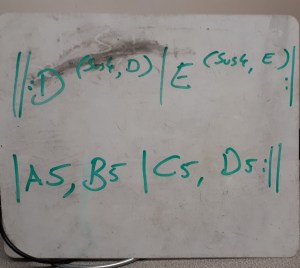 ||:D (Sus4, D) | E (Sus4, E) :|
|A5, B5 |C5, D5:||